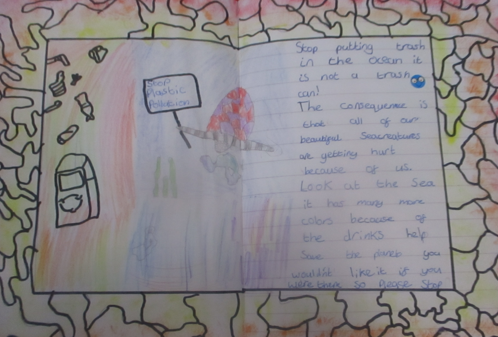 Stop
Plastic
Pollution
Stop putting trash
in the ocean it
is not a trash
can!
The consequence is
that all of our
beautiful Seacreatures
are getting hurt
because of us.
Look at the Sea
it has many more
colors because of
the drinks help
Save the planet you
wouldn't like it if you
were them so Please Stop